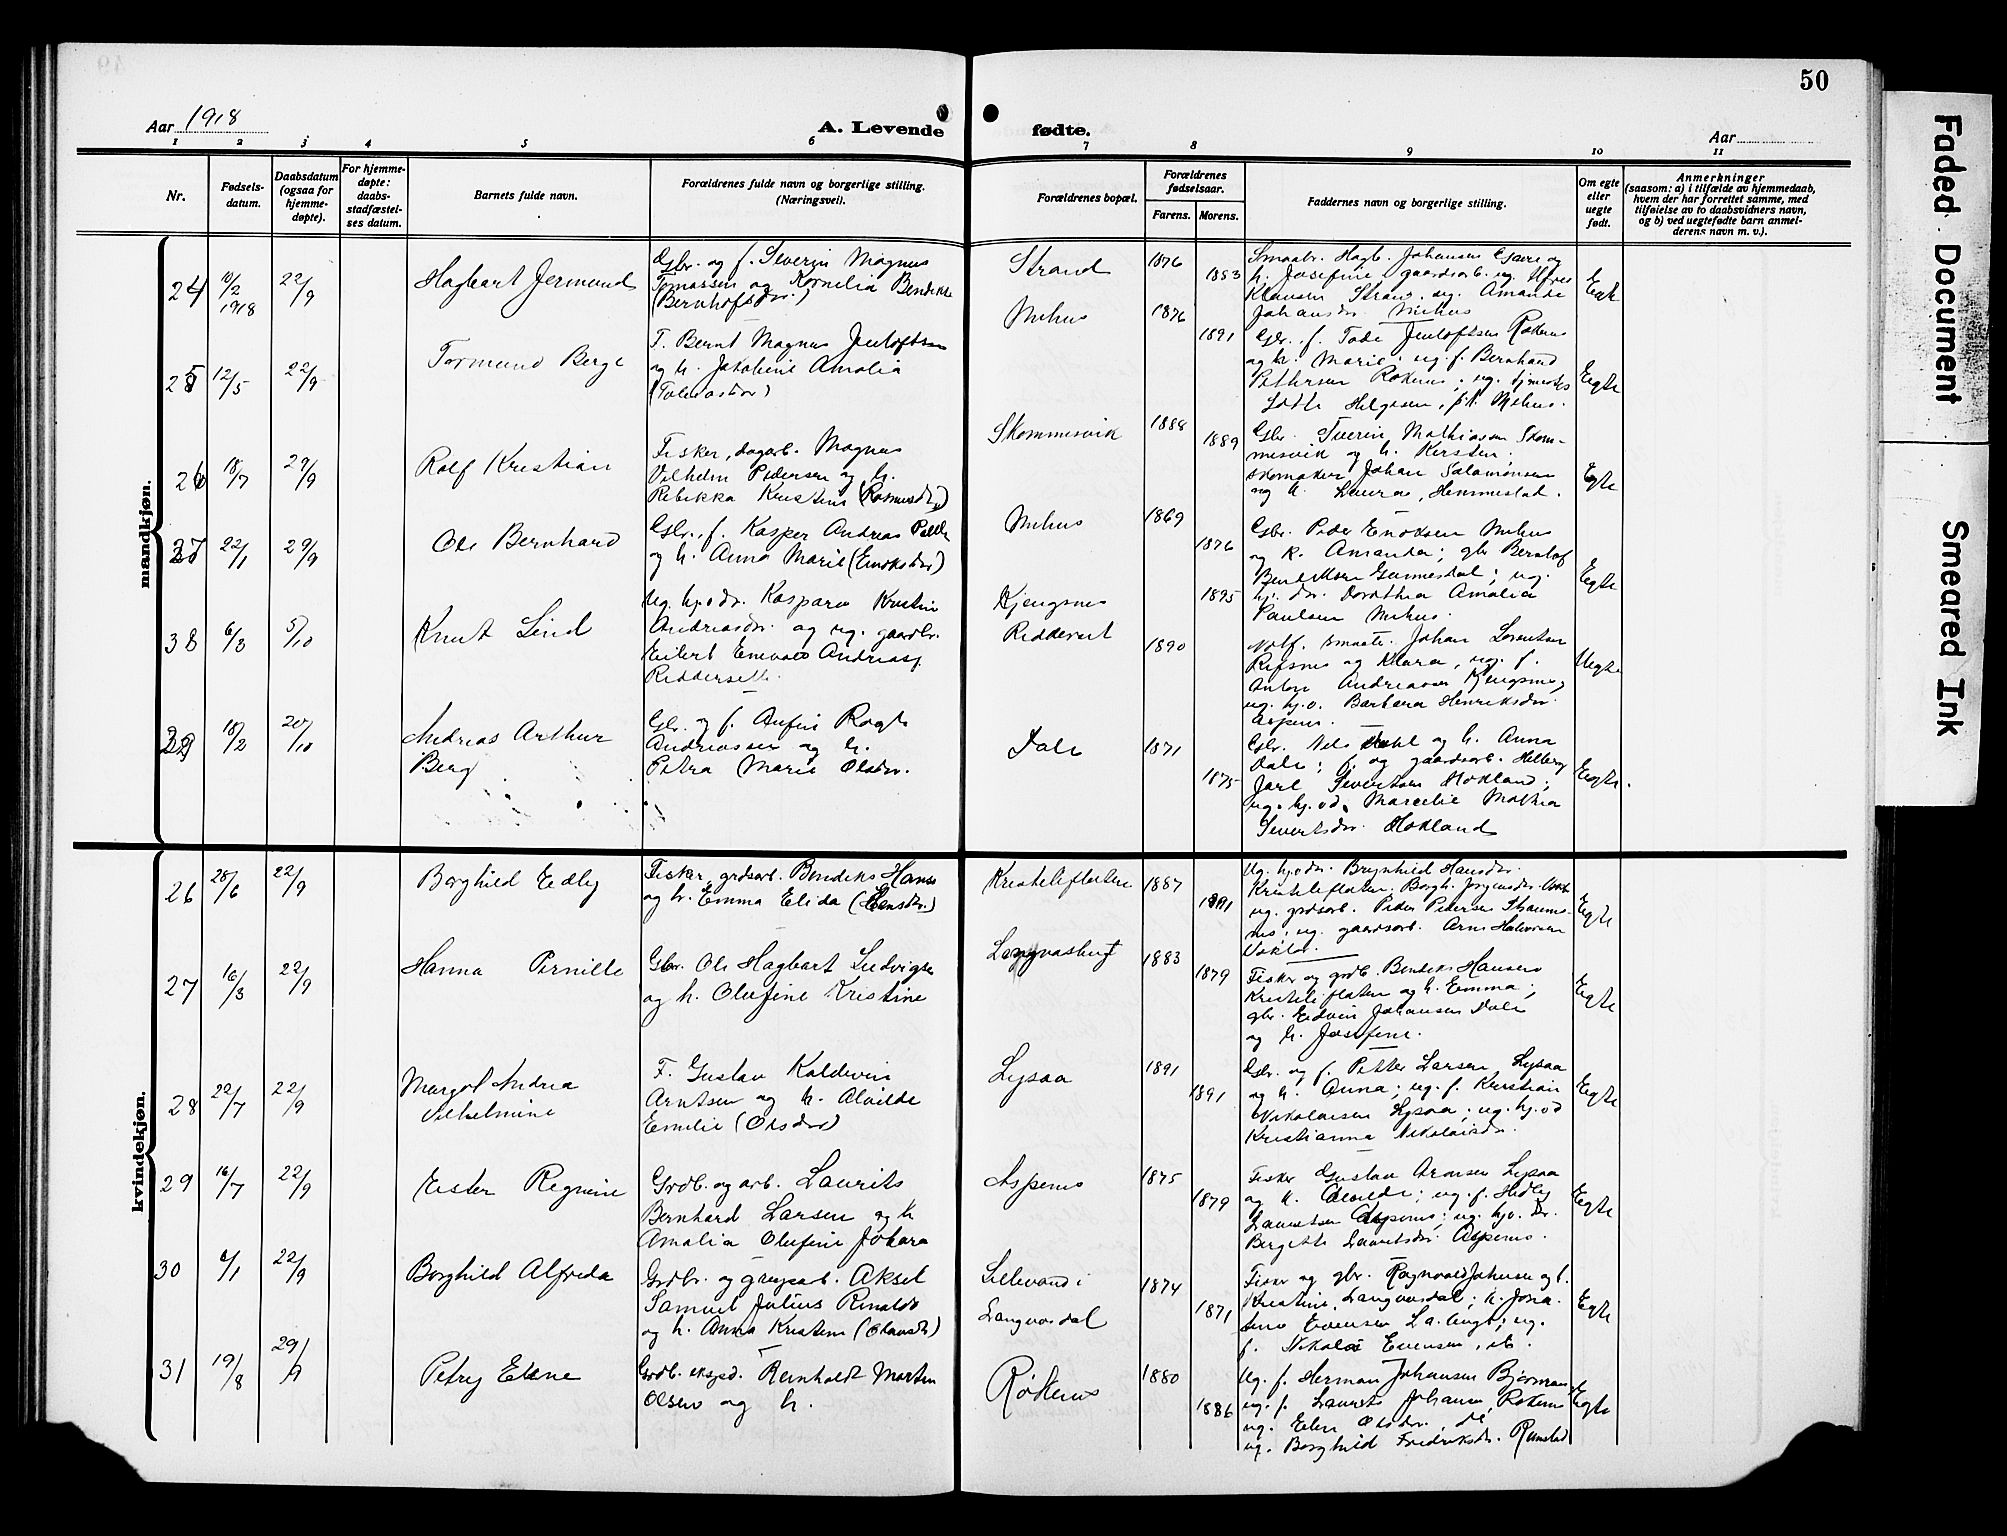 50
Aar 1918
A. Levende
fødte.
Aar
1 2 3 4 5 6 7 8 9 10 11
Nr.
Fødsels-
datum.
Daabsdatum
(ogsaa for
hjemme-
døpte).
For hjemme-
døpte:
daabs-
stadfæstel-
ses datum.
Barnets fulde navn.
Forældrenes fulde navn og borgerlige stilling.
(Næringsvei).
Forældrenes bopæl.
Forældrenes
fødselsaar.
Farens. Morens.
Faddernes navn og borgerlige stilling.
Om egte
eller
uegte
født.
Anmerkninger
(saasom: a) i tilfælde av hjemmedaab,
hvem der har forrettet samme, med
tilføielse av to daabsvidners navn,
og b) ved uegtefødte barn anmel-
derens navn m. v.).
mandkjøn.
24
10/2
1918
22/9
Hagbart Jermund
Gbr. og f. Severin Magnus
Tomassen og Kornelia Bendikte
(Bernhofsdr.)
Strand
1876
1883
Smaabr. Hagb. Johansen
h. Josefine gaardsarb. ug.
Klausen Strand, ug. Amanda
Johansdr. Melhus
Egte
25
12/5
22/9
Tormund Berge
F. Bernt Magnus Jentoftsen
og h. Jakobine Amalia
Melhus
1876
1891
Gbr. f. Tode Jentoftsen Røkenes
og h. Marie; ug. f. Bernhard
Pettersen Røkenes; ug.
Lotte Helgesen, Melhus.
Egte
26
18/7
29/9
Rolf Kristian
Fisker, dagarb. Magnus
Vilhelm Pedersen og h.
Rebekka Kristine (Rasmusdr.)
Skommesvik
1888
1889
Gbr. Severin Mathiassen Skom-
mesvik og h. Kersten;
skomaker Johan Salamonsen
og h. Laura, Hemmestad.
Egte
27
22/1
29/9
Ole Bernhard
Gbr. f. Kasper Andreas
og h. Anna Marie (Enoksdr.)
Melhus
1869
1876
Gbr. Peder Enoksen Melhus
og k. Amanda; gbr Berntof
Bendiksen; ug.
hj. dr. Dorothea Amalia
Paulsen Melhus.
Egte
38
6/3
5/10
Knut Leind
Ug. hj.o.dr. Kaspara Kristine
Andreasdr. og ug. gaardbr.
Eilert Enevald Andreas
Ridderset.
Kjengsnes
Ridderset
1895
1890
smaabr. Johan Lorentsen
Refsnes og Klara, ug. f.
Anton Andreassen Kjengsnes,
ug. hj.o. Barbara Henriksdr.
Aspenes.
Uegte
39
18/2
20/10
Andreas Arthur
Berg
Gbr. og f. Anfin
Andreassen og h.
Petra Marie Olsdr.
Dale
1871
1875
Gbr. Nels Dahl og h. Anna
Dale; f. og gaardsarb.
Jarl Sivertsen Hokland;
ug. hj.od. Marcelie Mathea
Sivertsdr. Hokland
Egte.
kvindekjøn.
26
28/6
22/9
Borghild Edly
Fisker grdsarb. Bendiks Hans
og h. Emma Elida (Hansdr.)
Kristeliflaten
1887
1891
Ug. hj.o.dr. Brynhild Hansdr.
Kristeliflaten; Borgh. Jørgensdr.
ug. grdsarb. Peder Pedersen
nes; ug. gaardsarb. Arne Halvorsen
Egte
27
16/3
22/9
Hanna Pernille
Gbr. Ole Hagbart Ludvigsen
og h. Olufine Kristine
Langvasbugt
1883
1879
Fisker og grdb. Bendiks Hansen
Kristeliflaten og h. Emma;
gbr. Edvin Johansen Dale
og h. Josefine.
Egte
28
22/7
22/9
Margot Andrea
Vilhelmine
F. Gustav Kaldevin
Arntsen og h. Alvilde
Emilie (Olsdr.)
Lysaa
1891
1891
Gbr. og f. Petter Larsen Lysaa
og h. Anna; ug. f. Kristian
Nikolaisen Lysaa; ug. hj.od
Kristianna Nikolaisdr.
Egte
29
16/7
22/9
Ester Regnine
Grdb. og arb. Laurits
Bernhard Larsen og h
Amalia Olufine Johara
Aspenes
1875
1879
Fisker Gustav Arntsen Lysaa
og h. Alvilde; ug. f. Hedley
Lauritsen Aspenes; ug. hjo. dr.
Bergitte Lauritsdr. Aspenes.
Egte
30
6/1
22/9
Borghild Alfreda
Grdbr. og grusarb. Aksel
Samuel Julius Rinaldo
og h. Anna Kristine (Olausdr.)
Lillevand i
Langvasdal
1874
1871
Fisker og gbr. Ragnvald Johnsen og h.
Kristine, Langvasdal; h. Jona-
Evensen La.bugt; ug.
f. Nikolai Evensen, sts.
Egte
31
19/8
29/9
Petry Elene
Grdb. eksped. Reinholdt Morten
Olsen og h.
Røkenes
1880
1886
Ug. f. Herman Johansen Bjørnraa
ug. f. Laurits Johansen, Røkenes
ug. Elen Olsdr. de
ug. Borghild Fredriksdr. Runstad
Egte
Faded Document
Smeared Ink